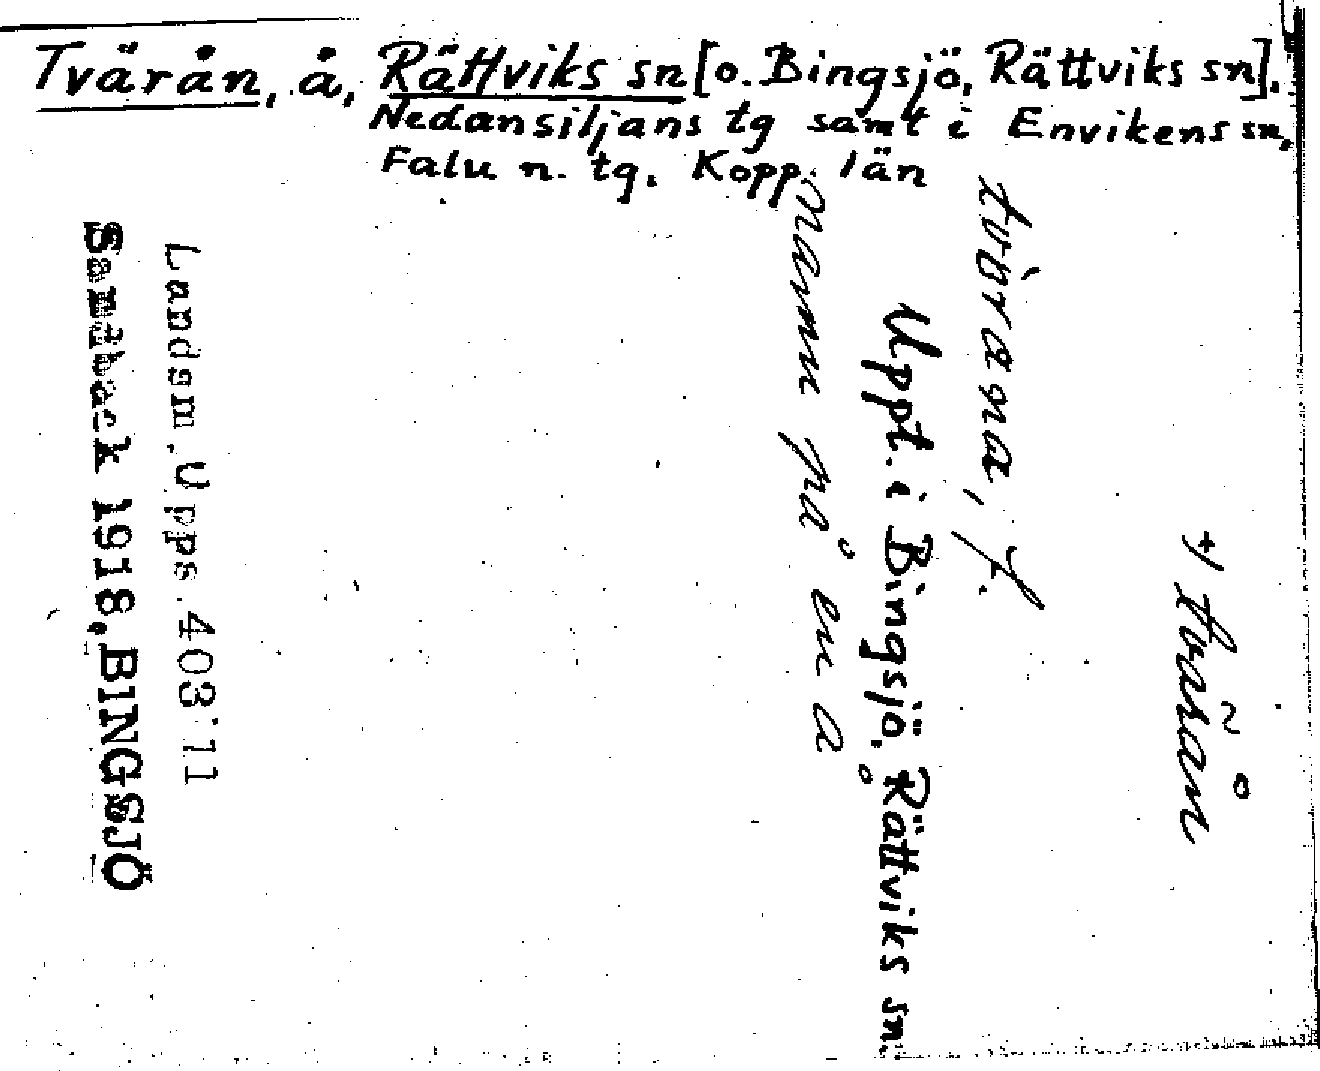 Tvärån, å, Rättviks sn [o. Bingsjö, Rättviks sn].
Nedansiljans tg samt i Envikens sn,
Falu n. tg. Kopp. län
+) tvärån
Uppt. i Bingsjö, Rättviks sn.
namn på en å
Landsm. Upps. 403:11
Sandbäck 1918. BINGSJÖ